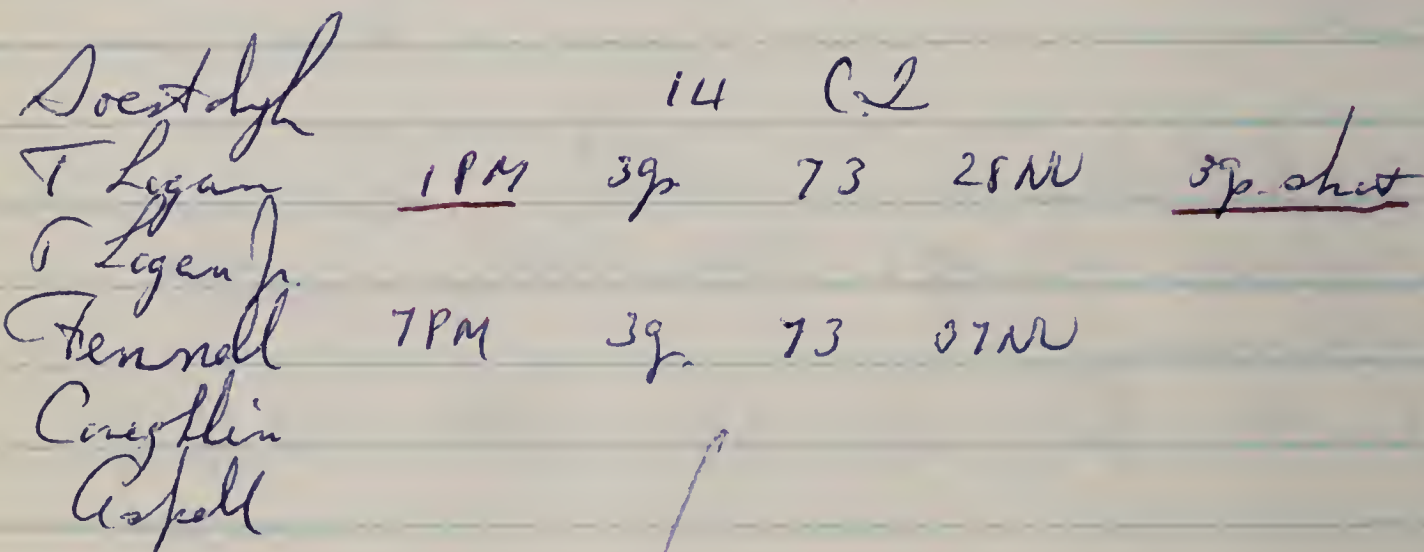 Soestdyk 14 C.I
T Logan 1 PM 3gs. 73 28NW 3gs. shut
T Logan Jr.
Fennell 7PM 3g. 73 37NW
Coughlin
Aspell